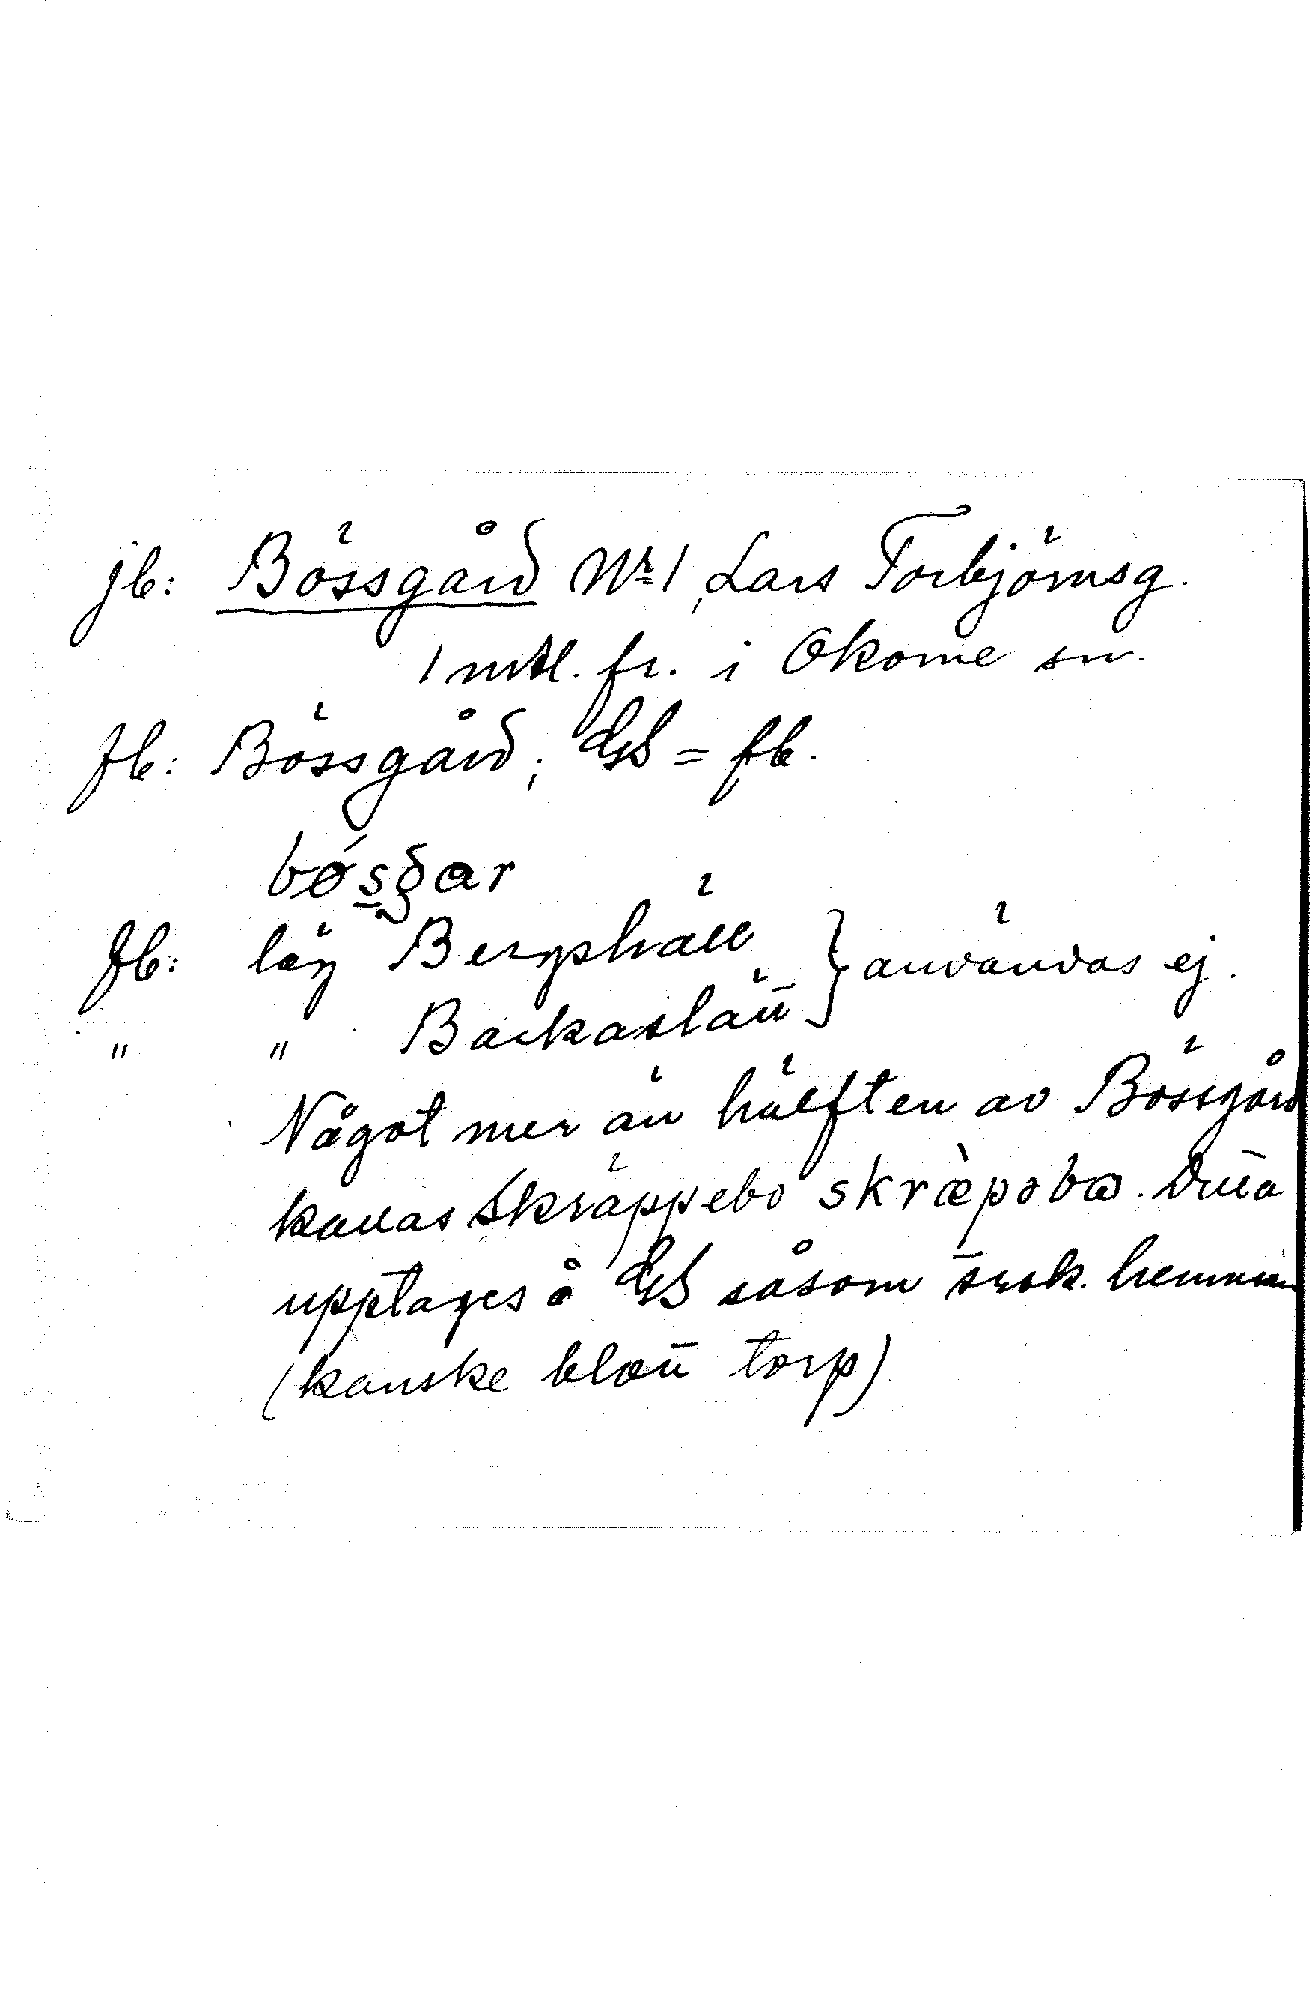 jb: Bössgård Nr 1, Lars Torbjörnsg.
1 mtl. fr. i Okome sn.
fb: Bössgård; GS = fb.
bøsgar
fb: läg Bergshäll } användas ej.
" " Backaslätt
Något mer än hälften av Bössgård
kallas Skräppebo skræpoba. Detta
upptages å GS såsom särsk. hemman
(kanske blott torp)